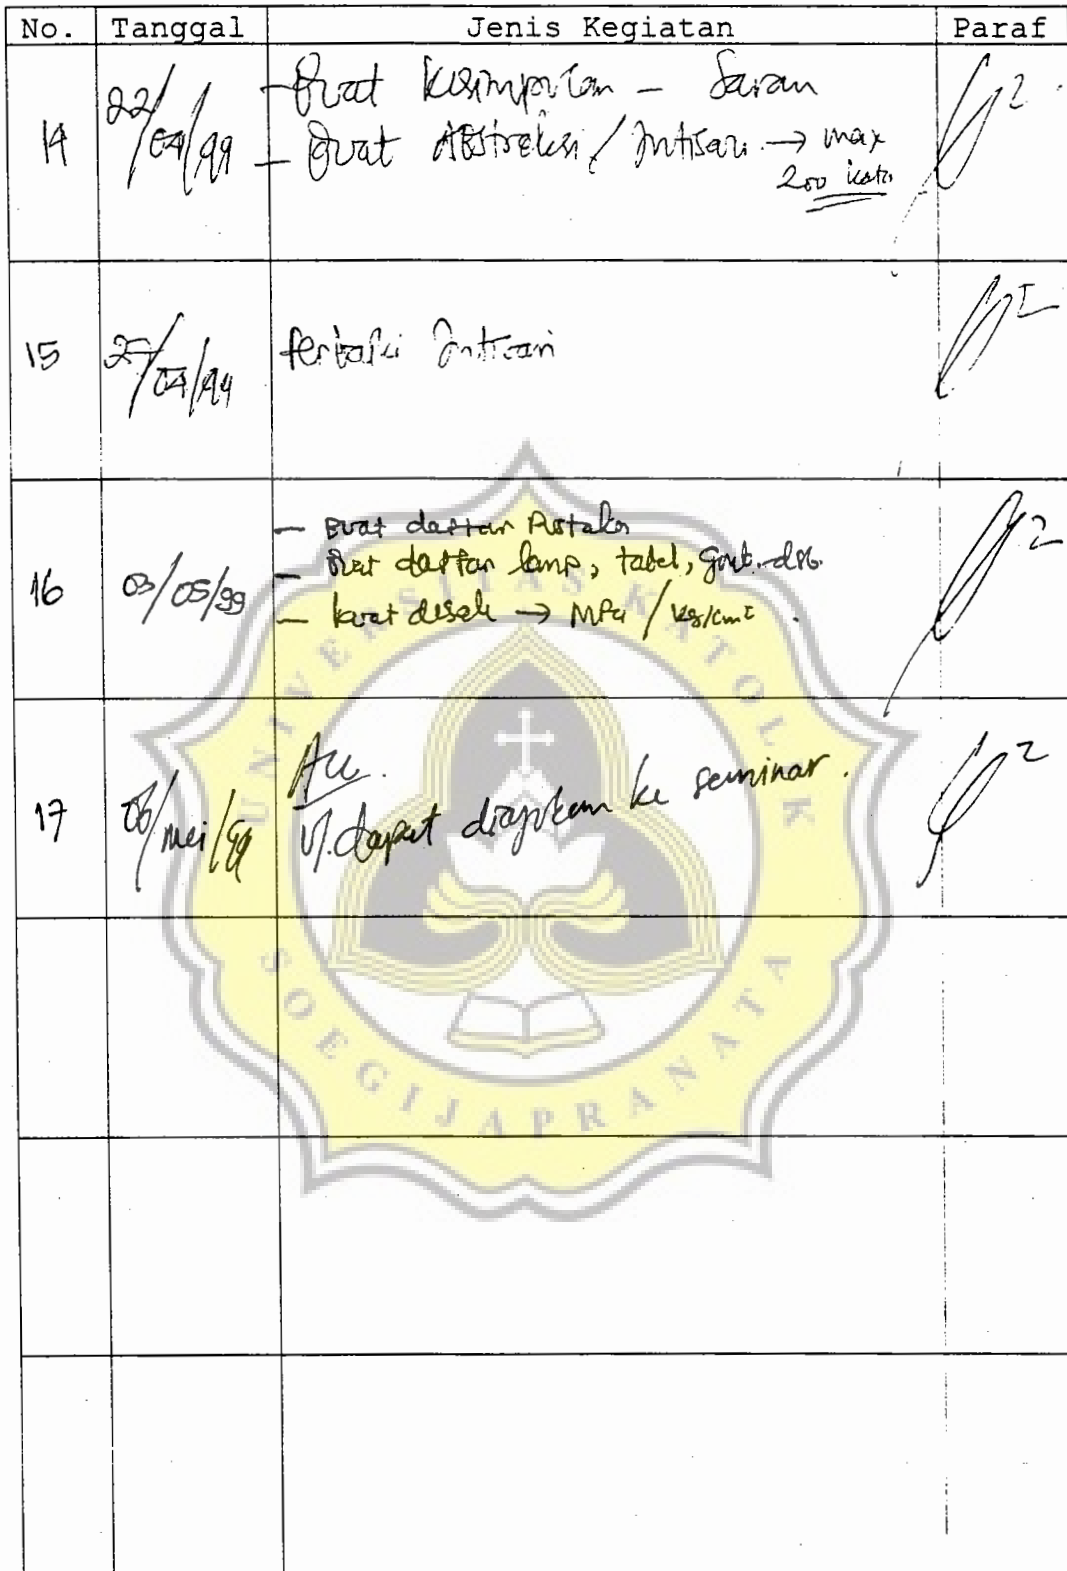 No. Tanggal Jenis Kegiatan Paraf
14 22/04/99 - Buat Kesimpulan - Saran
- Buat Abstraksi / Intisari → max
200 kata
15 27/04/99 Perbaiki Intisari
16 03/05/99 - Buat daftar Pustaka
- Buat daftar lamp, tabel, gbr. dsb.
- kuat desak → MPa / kg/cm²
17 06/mei/99 Acc.
U/. dapat diajukan ke seminar.
UNIVERSITAS KATOLIK
SOEGIJAPRANATA